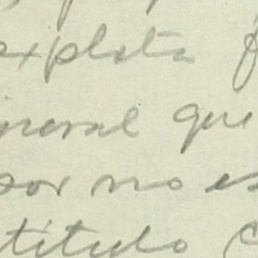 explota
neral que
por no es
título